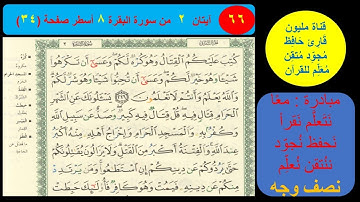 ٦٦
آيتان ٢ من سورة البقرة ٨ أسطر صفحة (٣٤)
قناة مليون
قارئ حافظ
مُجوّد مُتقن
مُعلّم للقرآن
كُتِبَ عَلَيْكُمُ الْقِتَالُ وَهُوَ كُرْهٌ لَّكُمْ وَعَسَىٰ أَن تَكْرَهُوا
شَيْئًا وَهُوَ خَيْرٌ لَّكُمْ وَعَسَىٰ أَن تُحِبُّوا شَيْئًا وَهُوَ شَرٌّ لَّكُمْ
وَاللَّهُ يَعْلَمُ وَأَنتُمْ لَا تَعْلَمُونَ ٢١٦ يَسْأَلُونَكَ عَنِ الشَّهْرِ
الْحَرَامِ قِتَالٍ فِيهِ قُلْ قِتَالٌ فِيهِ كَبِيرٌ وَصَدٌّ عَن سَبِيلِ اللَّهِ
وَكُفْرٌ بِهِ وَالْمَسْجِدِ الْحَرَامِ وَإِخْرَاجُ أَهْلِهِ مِنْهُ أَكْبَرُ
عِندَ اللَّهِ وَالْفِتْنَةُ أَكْبَرُ مِنَ الْقَتْلِ وَلَا يَزَالُونَ يُقَاتِلُونَكُمْ
حَتَّىٰ يَرُدُّوكُمْ عَن دِينِكُمْ إِنِ اسْتَطَاعُوا وَمَن يَرْتَدِدْ
مِنكُمْ عَن دِينِهِ فَيَمُتْ وَهُوَ كَافِرٌ فَأُولَٰئِكَ حَبِطَتْ
مبادرة : معًا
نتعلّم نَقرأ
نَحفظ نُجوّد
نُتقن نُعلّم
نصف وجه